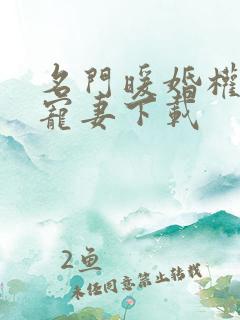 名門暖婚權
寵妻下載
2鱼
未经同意禁止转载